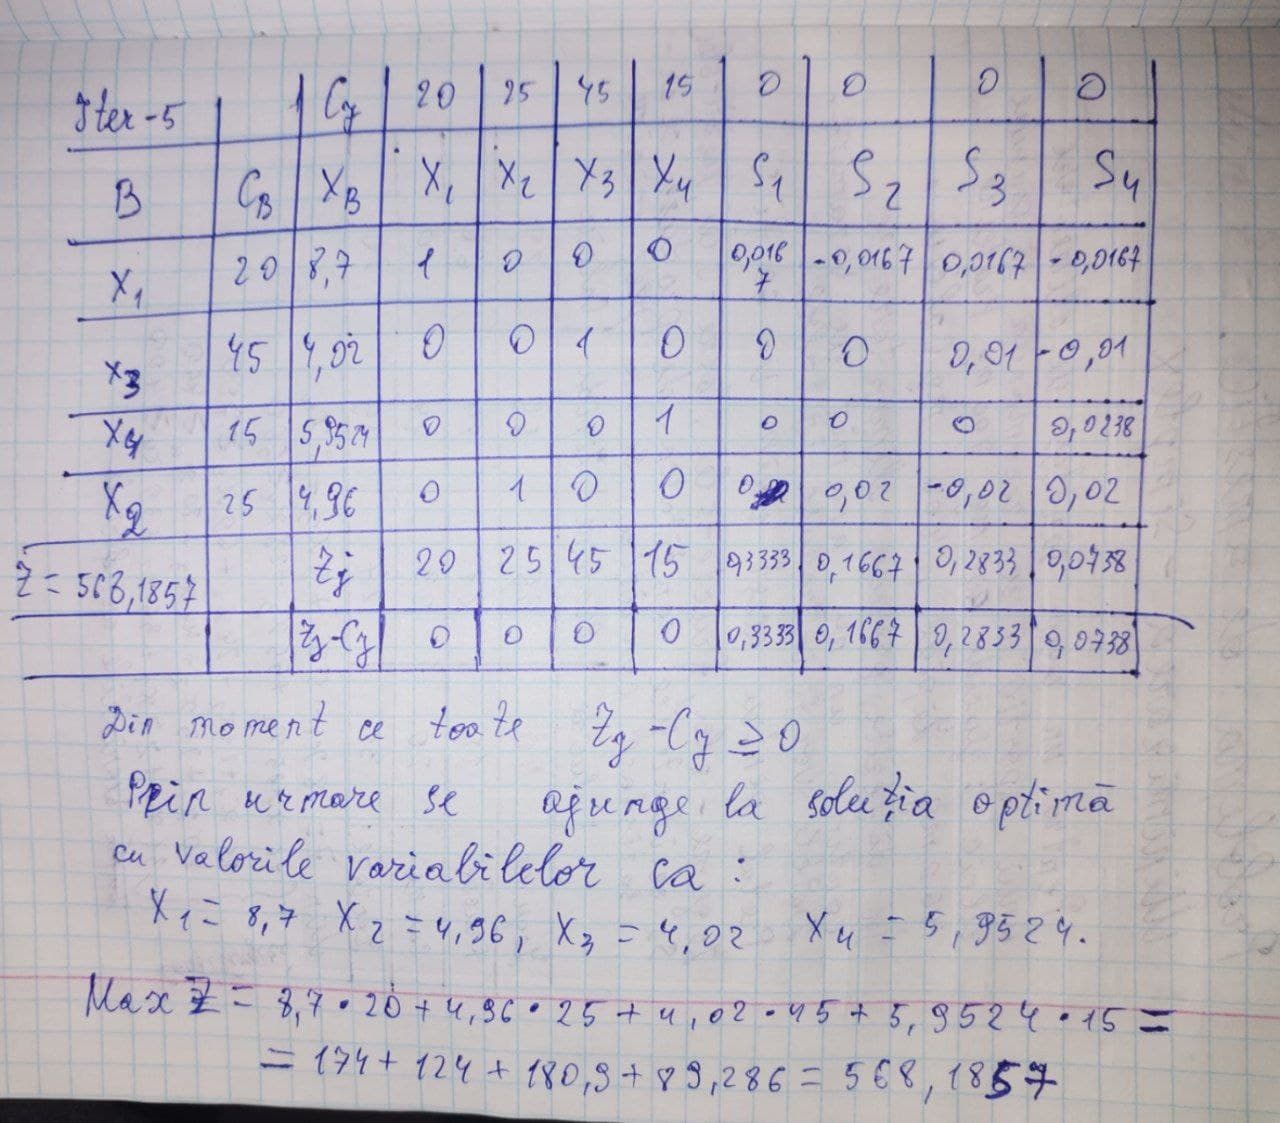 Iter-5 Cj 20 25 45 15 0 0 0 0
B CB XB X1 X2 X3 X4 S1 S2 S3 S4
X1 20 8,7 1 0 0 0 0,0167 -0,0167 0,0167 -0,0167
X3 45 4,02 0 0 1 0 0 0 0,01 -0,01
X4 15 5,9524 0 0 0 1 0 0 0 0,0238
X2 25 4,96 0 1 0 0 0 0,02 -0,02 0,02
Z = 568,1857 Zj 20 25 45 15 0,3333 0,1667 0,2833 0,0738
Zj-Cj 0 0 0 0 0,3333 0,1667 0,2833 0,0738
Din moment ce toate Zj-Cj ≥ 0
Prin urmare se ajunge la soluția optimă
cu valorile variabilelor ca :
X1 = 8,7 X2 = 4,96, X3 = 4,02 X4 = 5,9524.
Max Z = 8,7·20+4,96·25+4,02·45+5,9524·15=
= 174+124+180,9+89,286=568,1857